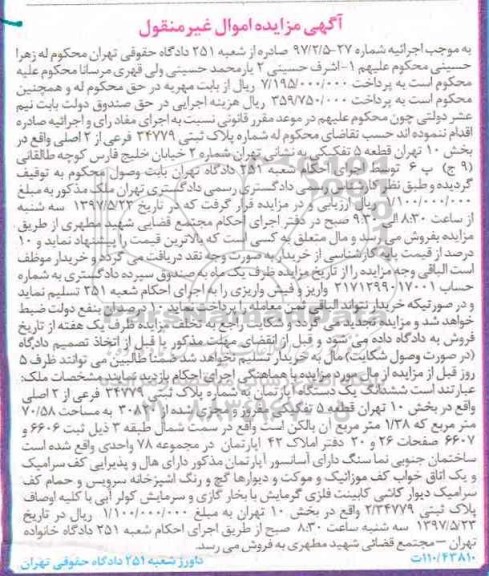 آگهی مزایده اموال غیر منقول
به موجب اجرائیه شماره ۲۷-۹۷/۲/۵ صادره از شعبه ۲۵۱ دادگاه حقوقی تهران محکوم له زهرا
حسینی محکوم علیهم ۱-اشرف حسینی ۲ یارمحمد حسینی ولی قهری مرسانا محکوم علیه
محکوم است به پرداخت ۷/۱۹۵/۰۰۰/۰۰۰ ریال از بابت مهریه در حق محکوم له و همچنین
محکوم است به پرداخت ۳۵۹/۷۵۰/۰۰۰ ریال هزینه اجرایی در حق صندوق دولت بابت نیم
عشر دولتی چون محکوم علیهم در موعد مقرر قانونی نسبت به اجرای مفاد رای و اجرائیه صادره
اقدام ننموده اند حسب تقاضای محکوم له شماره پلاک ثبتی ۳۴۷۷۹ فرعی از ۲ اصلی واقع در
بخش ۱۰ تهران قطعه ۵ تفکیکی به نشانی تهران شماره ۲ خیابان خلیج فارس کوچه طالقانی
(۹ ج) پ ۶ توسط اجرای احکام شعبه ۲۵۱ دادگاه تهران بابت وصول محکوم به توقیف
گردیده و طبق نظر کارشناس رسمی دادگستری رسمی دادگستری تهران ملک مذکور به مبلغ
۱/۱۰۰/۰۰۰/۰۰۰ ریال ارزیابی و در مزایده قرار گرفت که در تاریخ ۱۳۹۷/۵/۲۳ سه شنبه
از ساعت ۸:۳۰ الی ۹:۳۰ صبح در دفتر اجرای احکام مجتمع قضایی شهید مطهری از طریق
مزایده بفروش می رسد و مال متعلق به کسی است که بالاترین قیمت را پیشنهاد نماید و ۱۰
درصد از قیمت پایه کارشناسی از خریدار به صورت وجه نقد دریافت می گردد و خریدار موظف
است الباقی وجه مزایده را از تاریخ مزایده ظرف یک ماه به صندوق سپرده دادگستری به شماره
حساب ۲۱۷۱۲۹۹۰۱۷۰۰۱ واریز و فیش واریزی را به اجرای احکام شعبه ۲۵۱ تسلیم نماید
و در صورتیکه خریدار نتواند الباقی ثمن معامله را پرداخت نماید ۱۰ درصد او بنفع دولت ضبط
خواهد شد و مزایده تجدید می گردد و شکایت راجع به تخلف مزایده ظرف یک هفته از تاریخ
فروش به دادگاه داده می شود و قبل از انقضای مهلت مذکور یا قبل از اتخاذ تصمیم دادگاه
(در صورت وصول شکایت) مال به خریدار تسلیم نخواهد شد ضمنا طالبین می توانند ظرف ۵
روز قبل از مزایده از مال مورد مزایده با هماهنگی اجرای احکام بازدید نمایند. مشخصات ملک:
عبارتند است ششدانگ یک دستگاه آپارتمان به شماره پلاک ثبتی ۳۴۷۷۹ فرعی از ۲ اصلی
واقع در بخش ۱۰ تهران قطعه ۵ تفکیکی مفروز و مجزی شده از ۳۰۸۲ به مساحت ۷۰/۵۸
متر مربع که ۱/۳۸ متر مربع آن بالکن است واقع در سمت شمال طبقه ۳ ذیل ثبت ۶۶۰۶ و
۶۶۰۷ صفحات ۲۶ و ۲۰ دفتر املاک ۴۲ آپارتمان در مجموعه ۷۸ واحدی واقع شده است
ساختمان جنوبی نما سنگ دارای آسانسور آپارتمان مذکور دارای هال و پذیرایی کف سرامیک
و یک اتاق خواب کف موزائیک و موکت و دیوارها گچ و رنگ آشپزخانه سرویس و حمام کف
سرامیک دیوار کاشی کابینت فلزی گرمایش با بخار گازی و سرمایش کولر آبی با کلیه اوصاف
پلاک ثبتی ۲/۳۴۷۷۹ واقع در بخش ۱۰ تهران به مبلغ ۱/۱۰۰/۰۰۰/۰۰۰ ریال در تاریخ
۱۳۹۷/۵/۲۳ سه شنبه ساعت ۸:۳۰ صبح از طریق اجرای احکام شعبه ۲۵۱ دادگاه خانواده
تهران – مجتمع قضائی شهید مطهری به فروش می رسد.
۱۱۰/۴۳۸۱۰ت داورز شعبه ۲۵۱ دادگاه حقوقی تهران